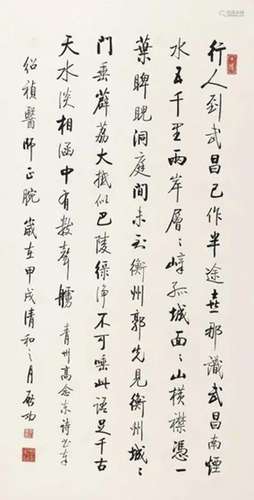 行人到武昌已作半途喜那識武昌南煙
水五千里兩岸層〻嶂孤城面〻山橫襟憑一
葉睥睨洞庭間未到衡州郭先見衡州城〻
門垂薜荔大抵似巴陵綠淨不可唾此語足千古
天水淡相涵中有數聲艣 青州高念东詩書奉
紹禎醫師正腕 歲在甲戌清和之月 啟功